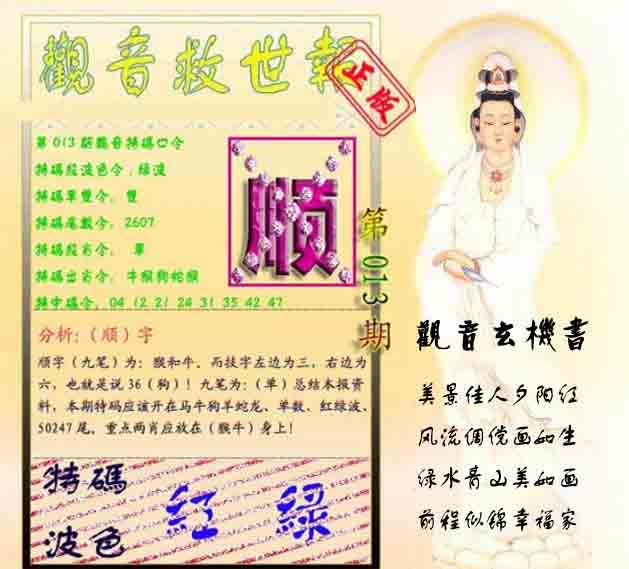 觀音救世報
正版
第013期觀音特碼口令
特碼段波色令,绿波
特碼單雙令。雙
特碼尾數令。2607
特碼段肖令。 單
特碼出肖令。牛猴狗蛇猴
特中碼令。04 12 21 24 31 35 42 47
順
第013期
分析:（顺）字
顺字（九笔）为：猴和牛。而按字左边为三，右边为
六，也就是说36（狗）！九笔为：（单）总结本报资
料，本期特码应该开在马牛狗羊蛇龙、单数、红绿波、
50247尾，重点两肖应放在（猴牛）身上！
特碼
波色
紅 綠
觀音玄機書
美景佳人夕阳红
风流倜傥画如生
绿水青山美如画
前程似锦幸福家